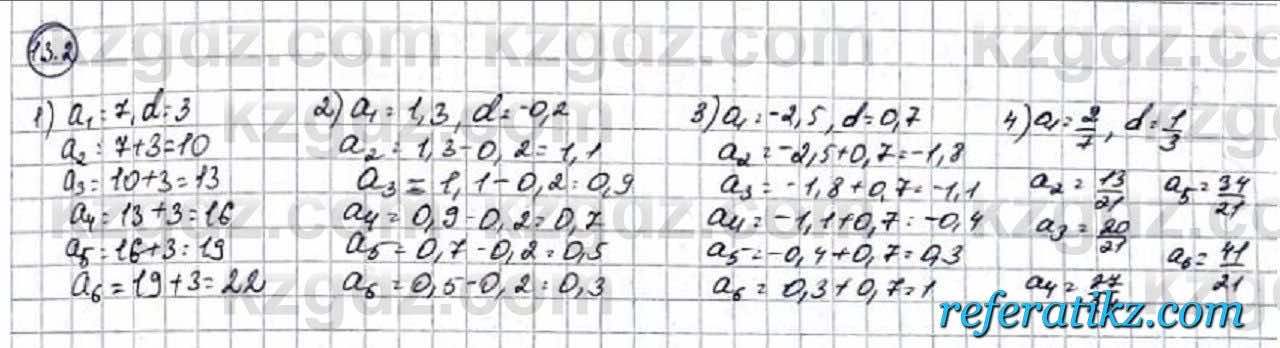 13.2
1) a₁ = 7, d = 3
a₂ = 7+3=10
a₃ = 10+3=13
a₄ = 13+3=16
a₅ = 16+3=19
a₆ = 19+3=22
2) a₁ = 1,3, d = -0,2
a₂ = 1,3-0,2=1,1
a₃ = 1,1-0,2=0,9
a₄ = 0,9-0,2=0,7
a₅ = 0,7-0,2=0,5
a₆ = 0,5-0,2=0,3
3) a₁ = -2,5, d = 0,7
a₂ = -2,5+0,7=-1,8
a₃ = -1,8+0,7=-1,1
a₄ = -1,1+0,7=-0,4
a₅ = -0,4+0,7=0,3
a₆ = 0,3+0,7=1
4) a₁ = 2/7, d = 1/3
a₂ = 13/21
a₃ = 20/21
a₄ = 27
a₅ = 34/21
a₆ = 41/21
kzgdz.com
referatikz.com